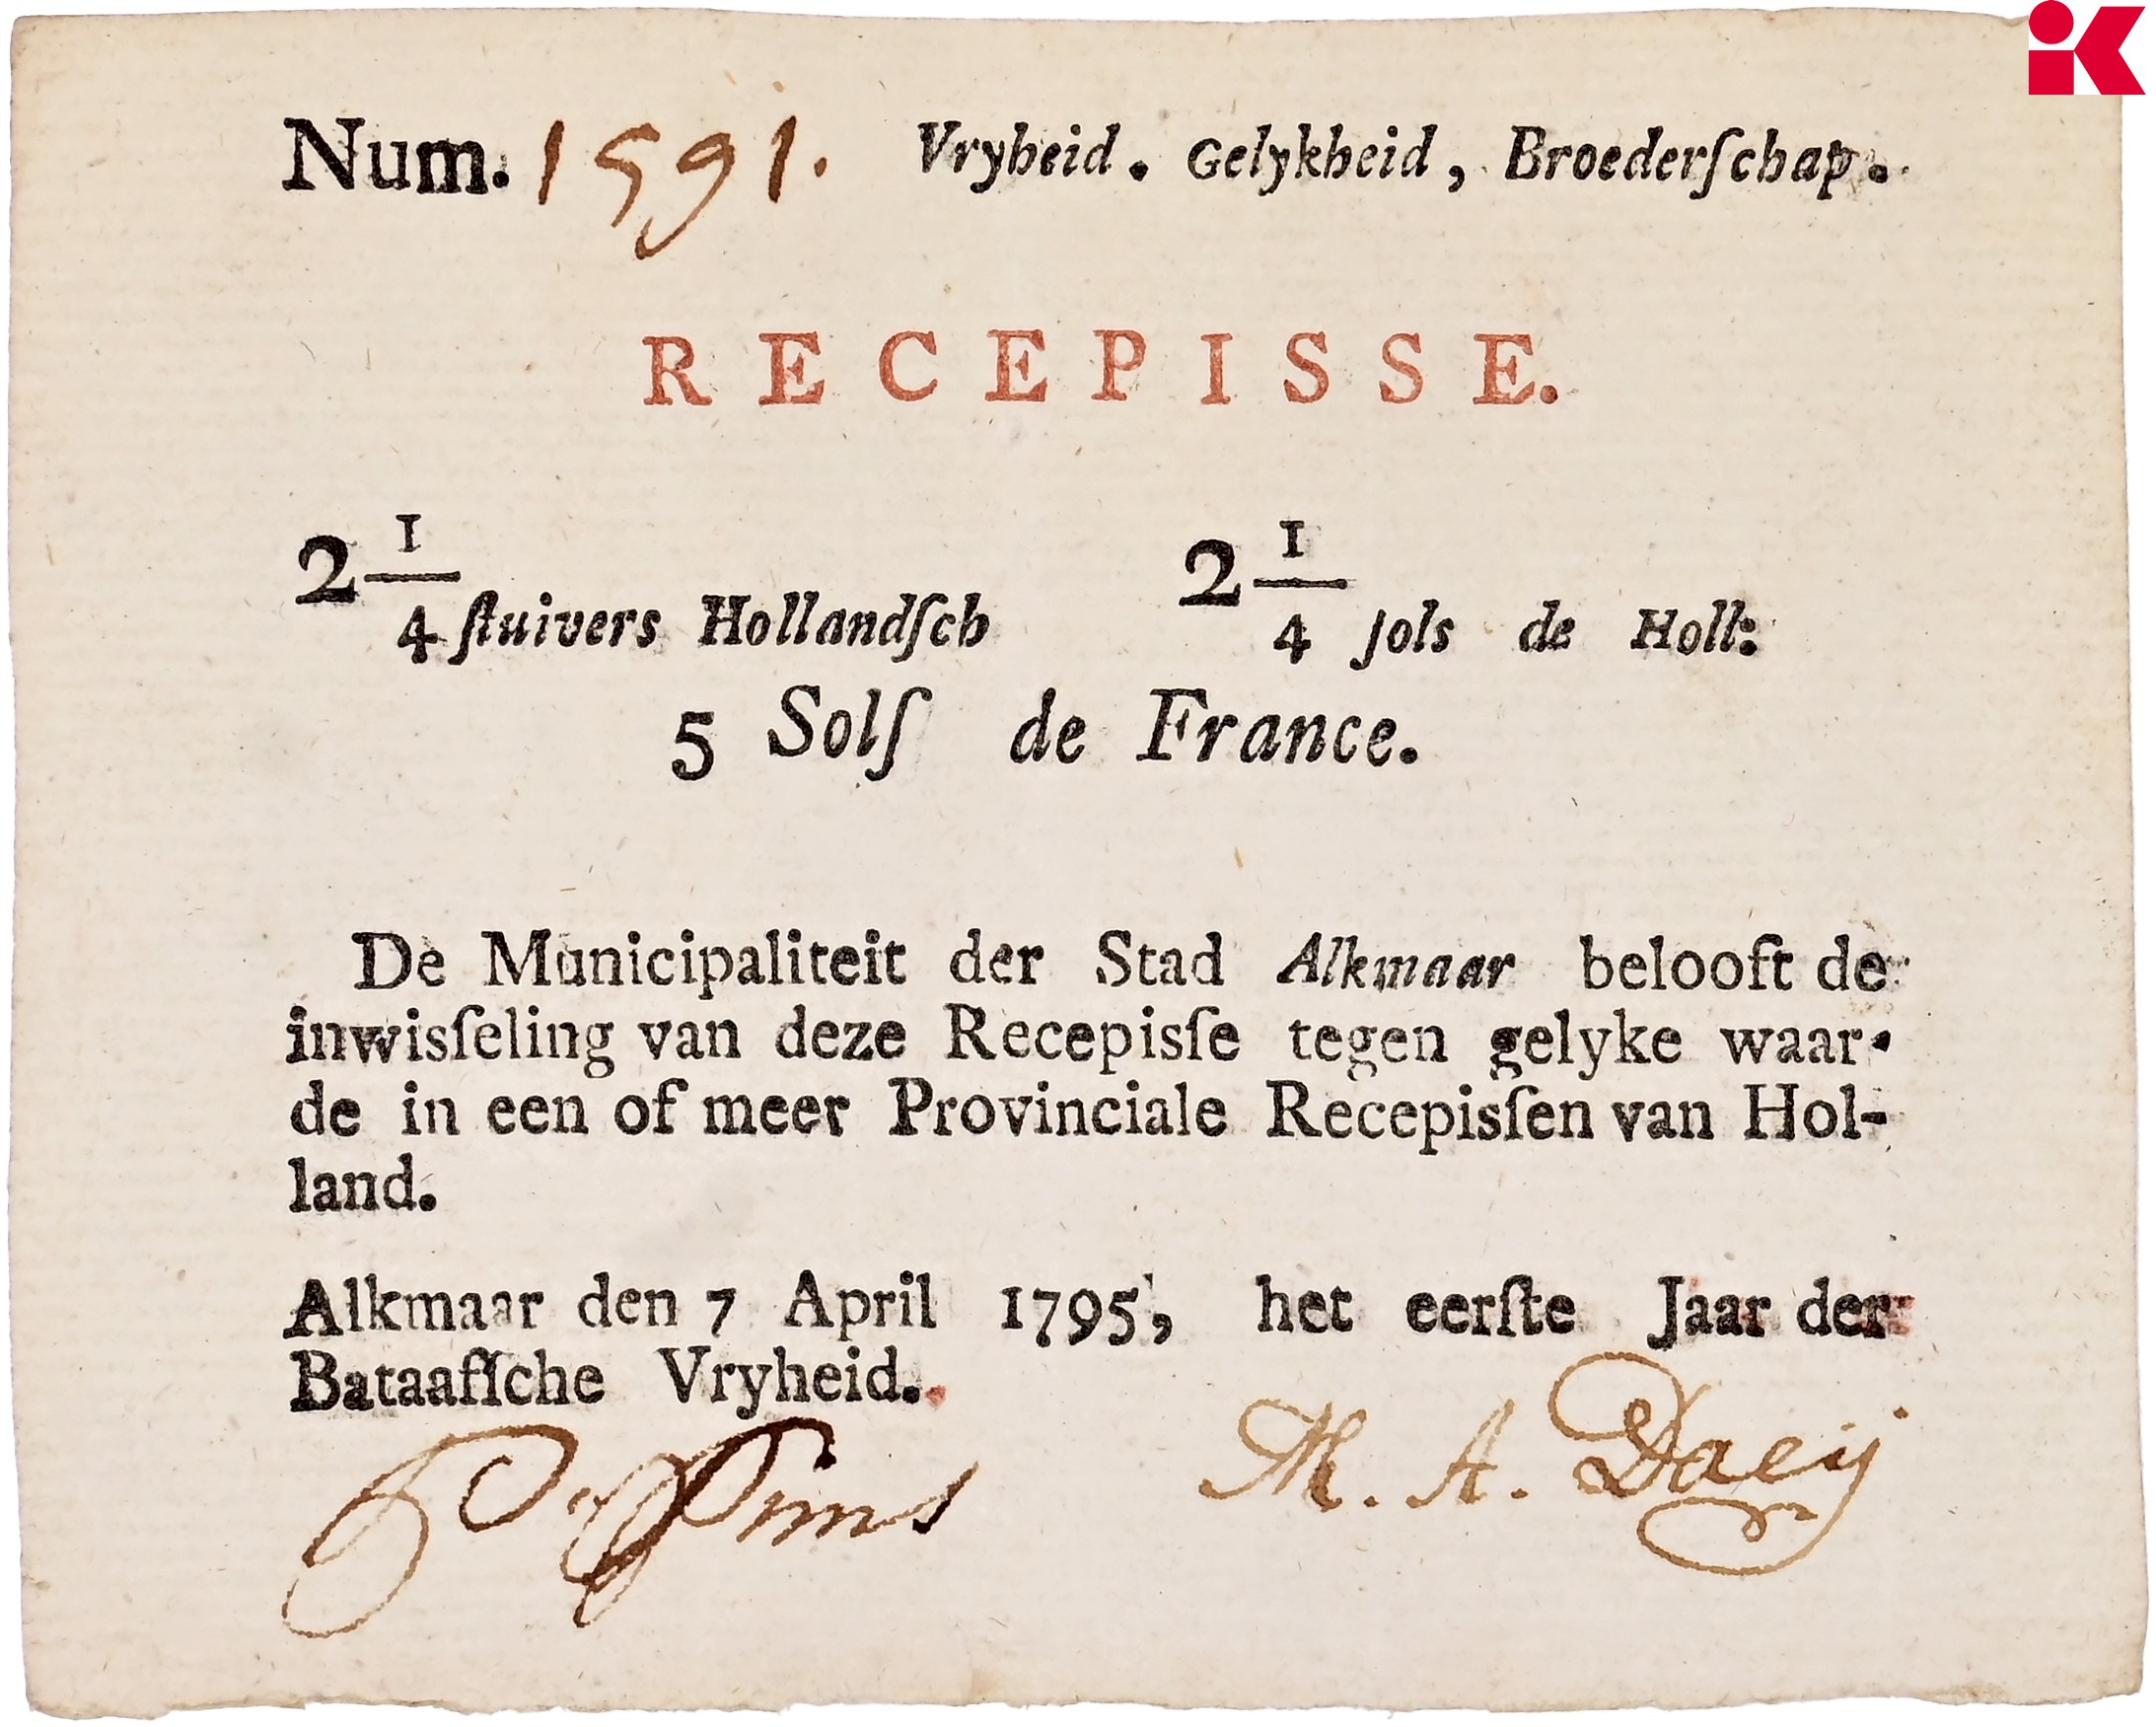 Num. 1591. Vryheid. Gelykheid, Broederſchap.
RECEPISSE.
2 1/4 ſtuivers Hollandſch 2 1/4 ſols de Holl:
5 Solſ de France.
De Municipaliteit der Stad Alkmaar belooft de
inwisſeling van deze Recepisſe tegen gelyke waar-
de in een of meer Provinciale Recepisſen van Hol-
land.
Alkmaar den 7 April 1795, het eerſte Jaar der
Bataafſche Vryheid.
M. A. Daeij